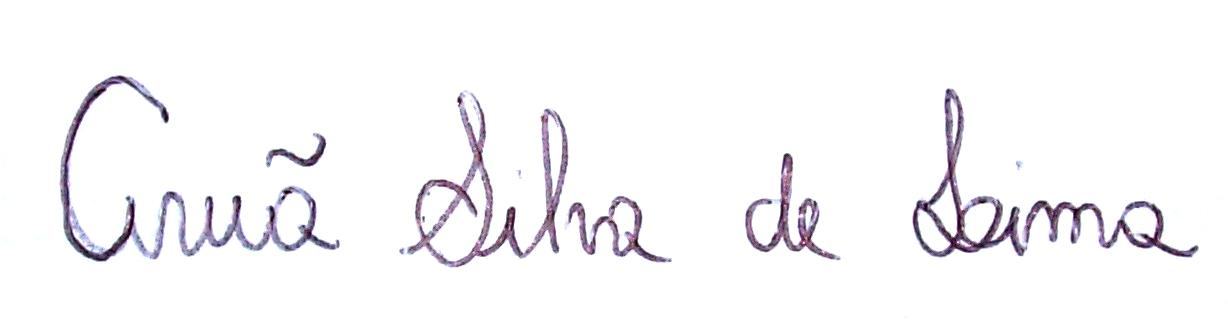 Aruã Silva de Lima